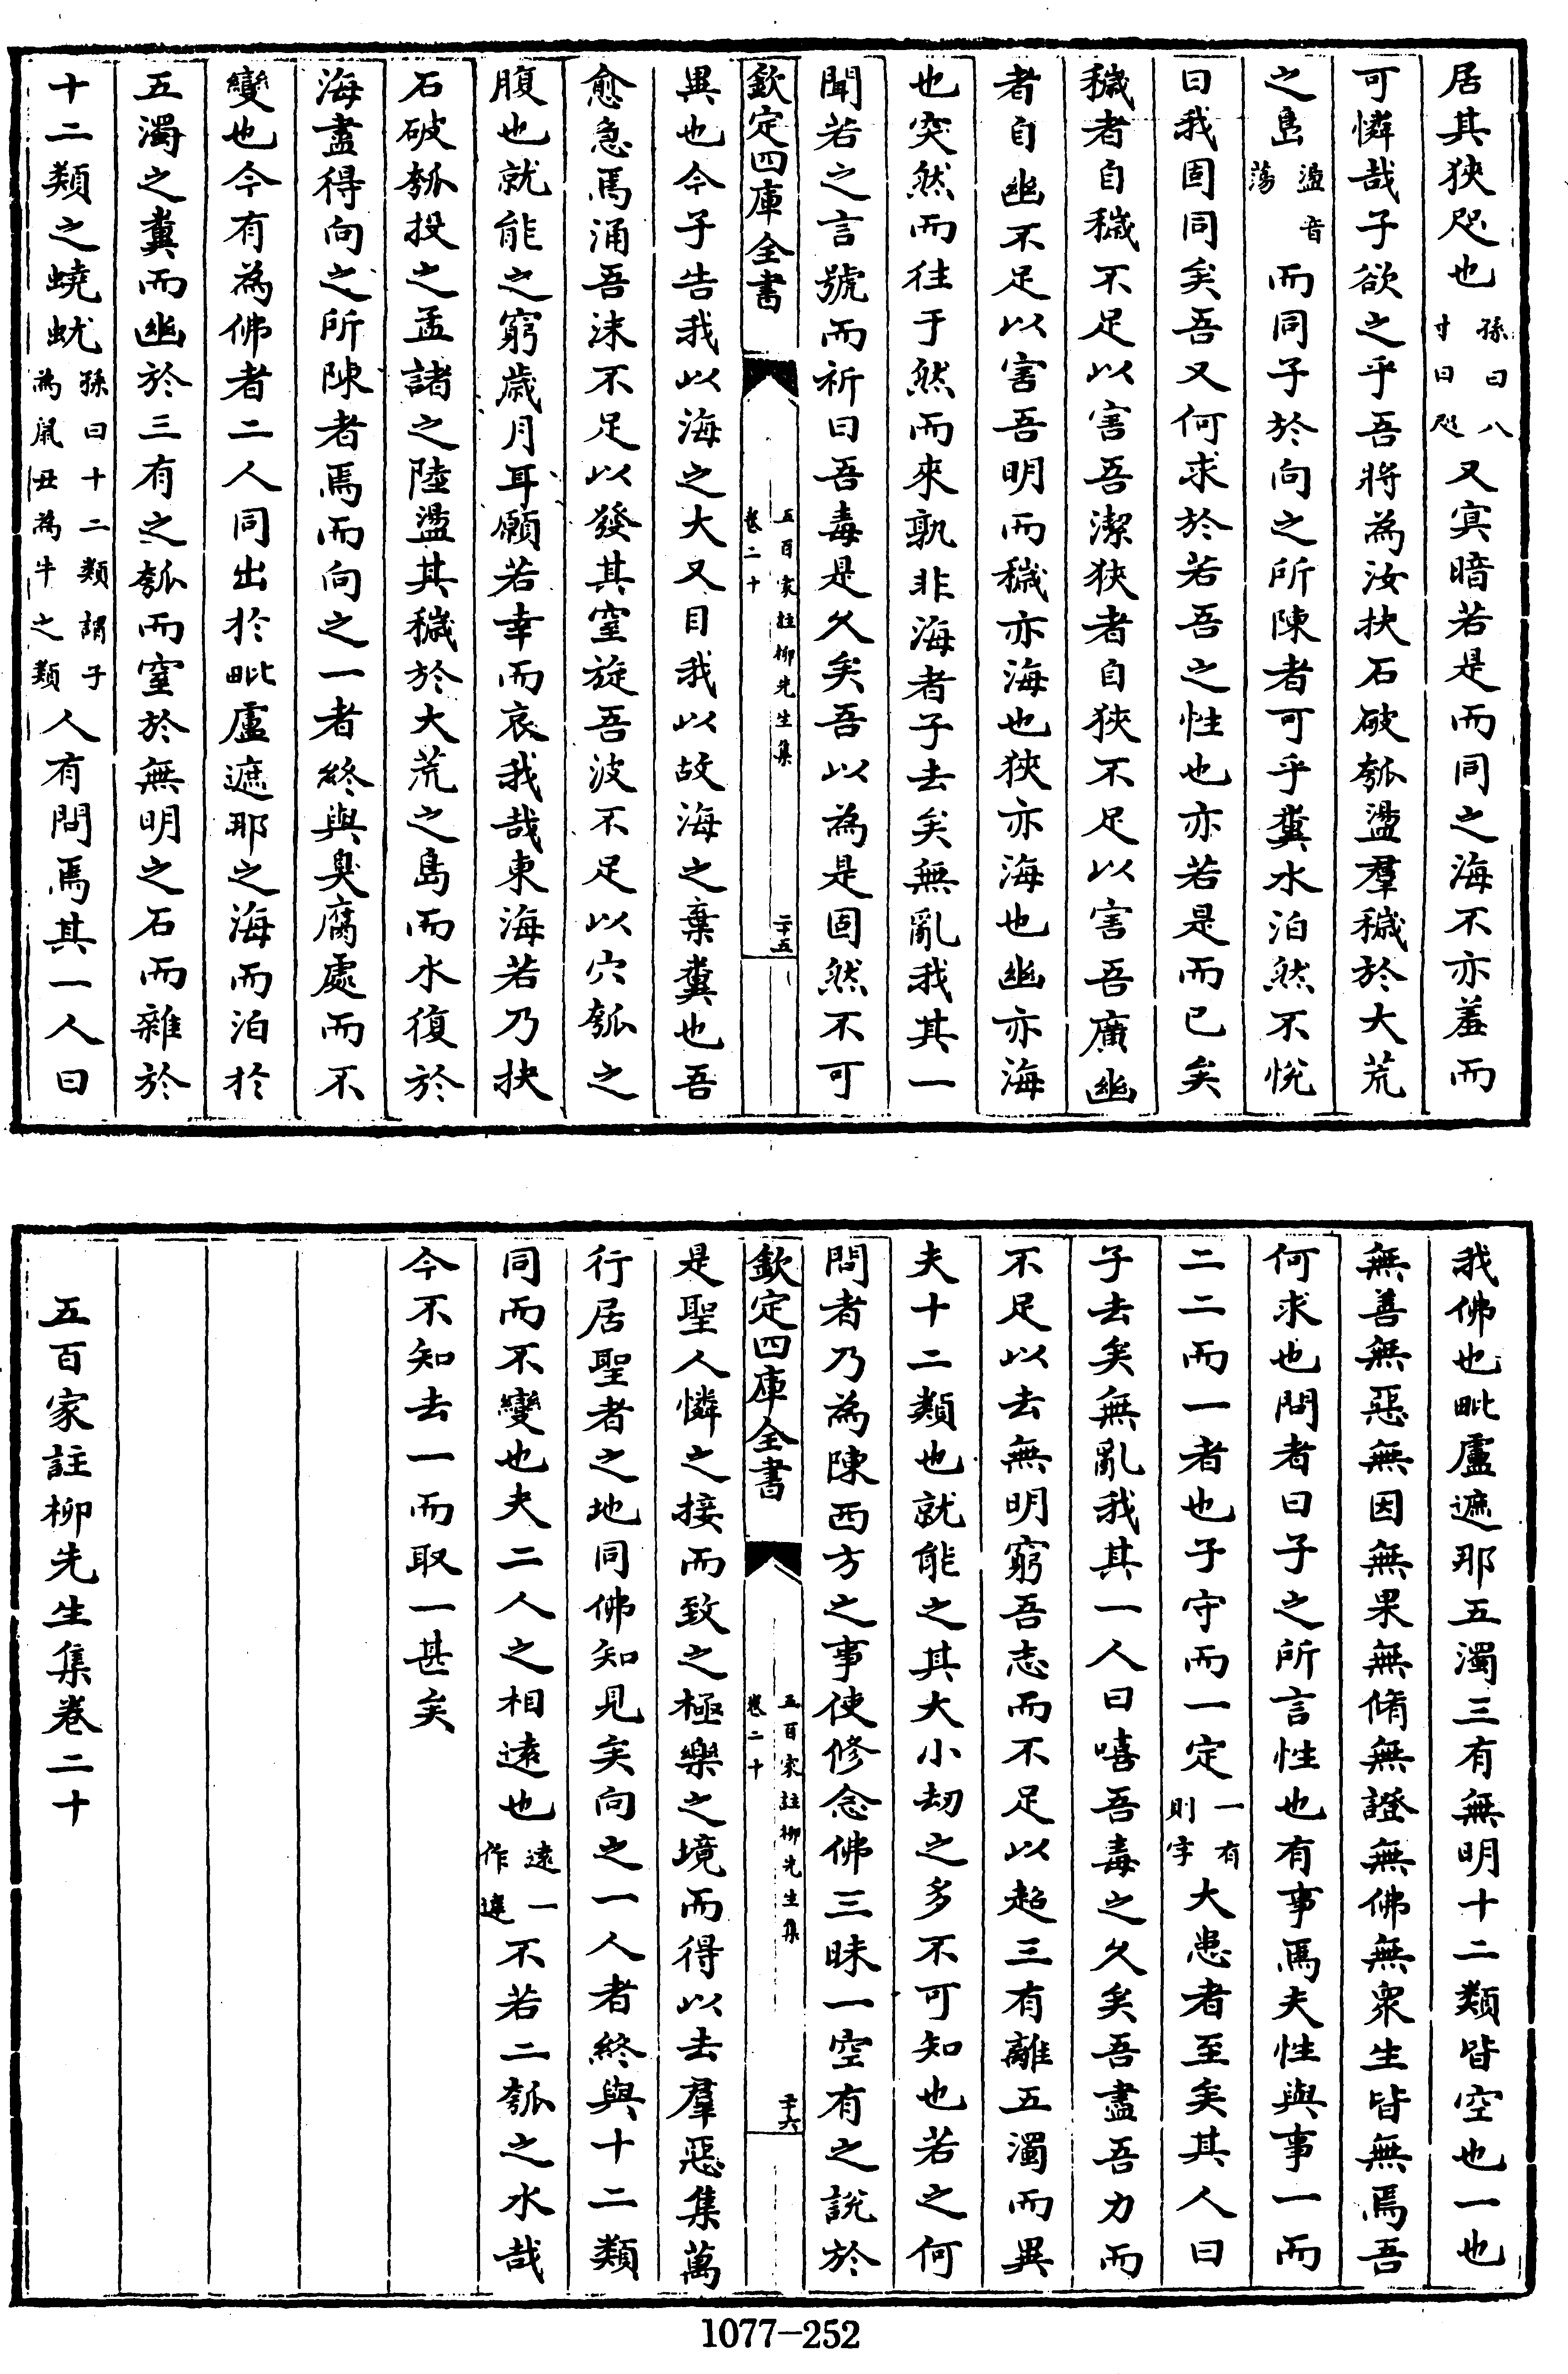 居其狹咫也孫曰八寸曰咫又㝠暗若是而同之海不亦羞而
可憐哉子欲之乎吾將為汝抉石破瓠盪羣穢於大荒
之島盪音蕩而同子於向之所陳者可乎糞水泊然不悅
曰我固同矣吾又何求於若吾之性也亦若是而已矣
穢者自穢不足以害吾潔狹者自狹不足以害吾廣幽
者自幽不足以害吾明而穢亦海也狹亦海也幽亦海
也突然而往于然而來孰非海者子去矣無亂我其一
聞若之言號而祈曰吾毒是久矣吾以為是固然不可
欽定四庫全書
五百家註柳先生集
卷二十
二十五
異也今子告我以海之大又目我以故海之棄糞也吾
愈急焉涌吾沫不足以發其窒旋吾波不足以穴瓠之
腹也就能之窮歲月耳願若幸而哀我哉東海若乃抉
石破瓠投之孟諸之陸盪其穢於大荒之島而水復於
海盡得向之所陳者焉而向之一者終與臭腐處而不
變也今有為佛者二人同出於毗盧遮那之海而泊於
五濁之糞而幽於三有之瓠而窒於無明之石而雜於
十二類之蟯蚘孫曰十二類謂子為鼠丑為牛之類人有問焉其一人曰
我佛也毗盧遮那五濁三有無明十二類皆空也一也
無善無惡無因無果無脩無證無佛無衆生皆無焉吾
何求也問者曰子之所言性也有事焉夫性與事一而
二二而一者也子守而一定一有則字大患者至矣其人曰
子去矣無亂我其一人曰嘻吾毒之久矣吾盡吾力而
不足以去無明窮吾志而不足以超三有離五濁而異
夫十二類也就能之其大小劫之多不可知也若之何
問者乃為陳西方之事使修念佛三昧一空有之說於
欽定四庫全書
五百家註柳先生集
卷二十
二十六
是聖人憐之接而致之極樂之境而得以去羣惡集萬
行居聖者之地同佛知見矣向之一人者終與十二類
同而不變也夫二人之相遠也遠一作違不若二瓠之水哉
今不知去一而取一甚矣
五百家註柳先生集卷二十
1077-252